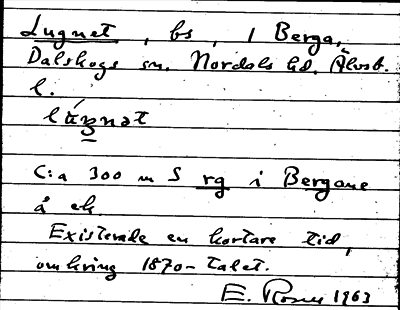 Lugnet, bs, 1 Berga,
Dalskogs sn. Nordals hd. Älvsb.
l.
C:a 300 m S rg i Bergane
å ek.
Existerade en kortare tid,
omkring 1870-talet.
E. 1963